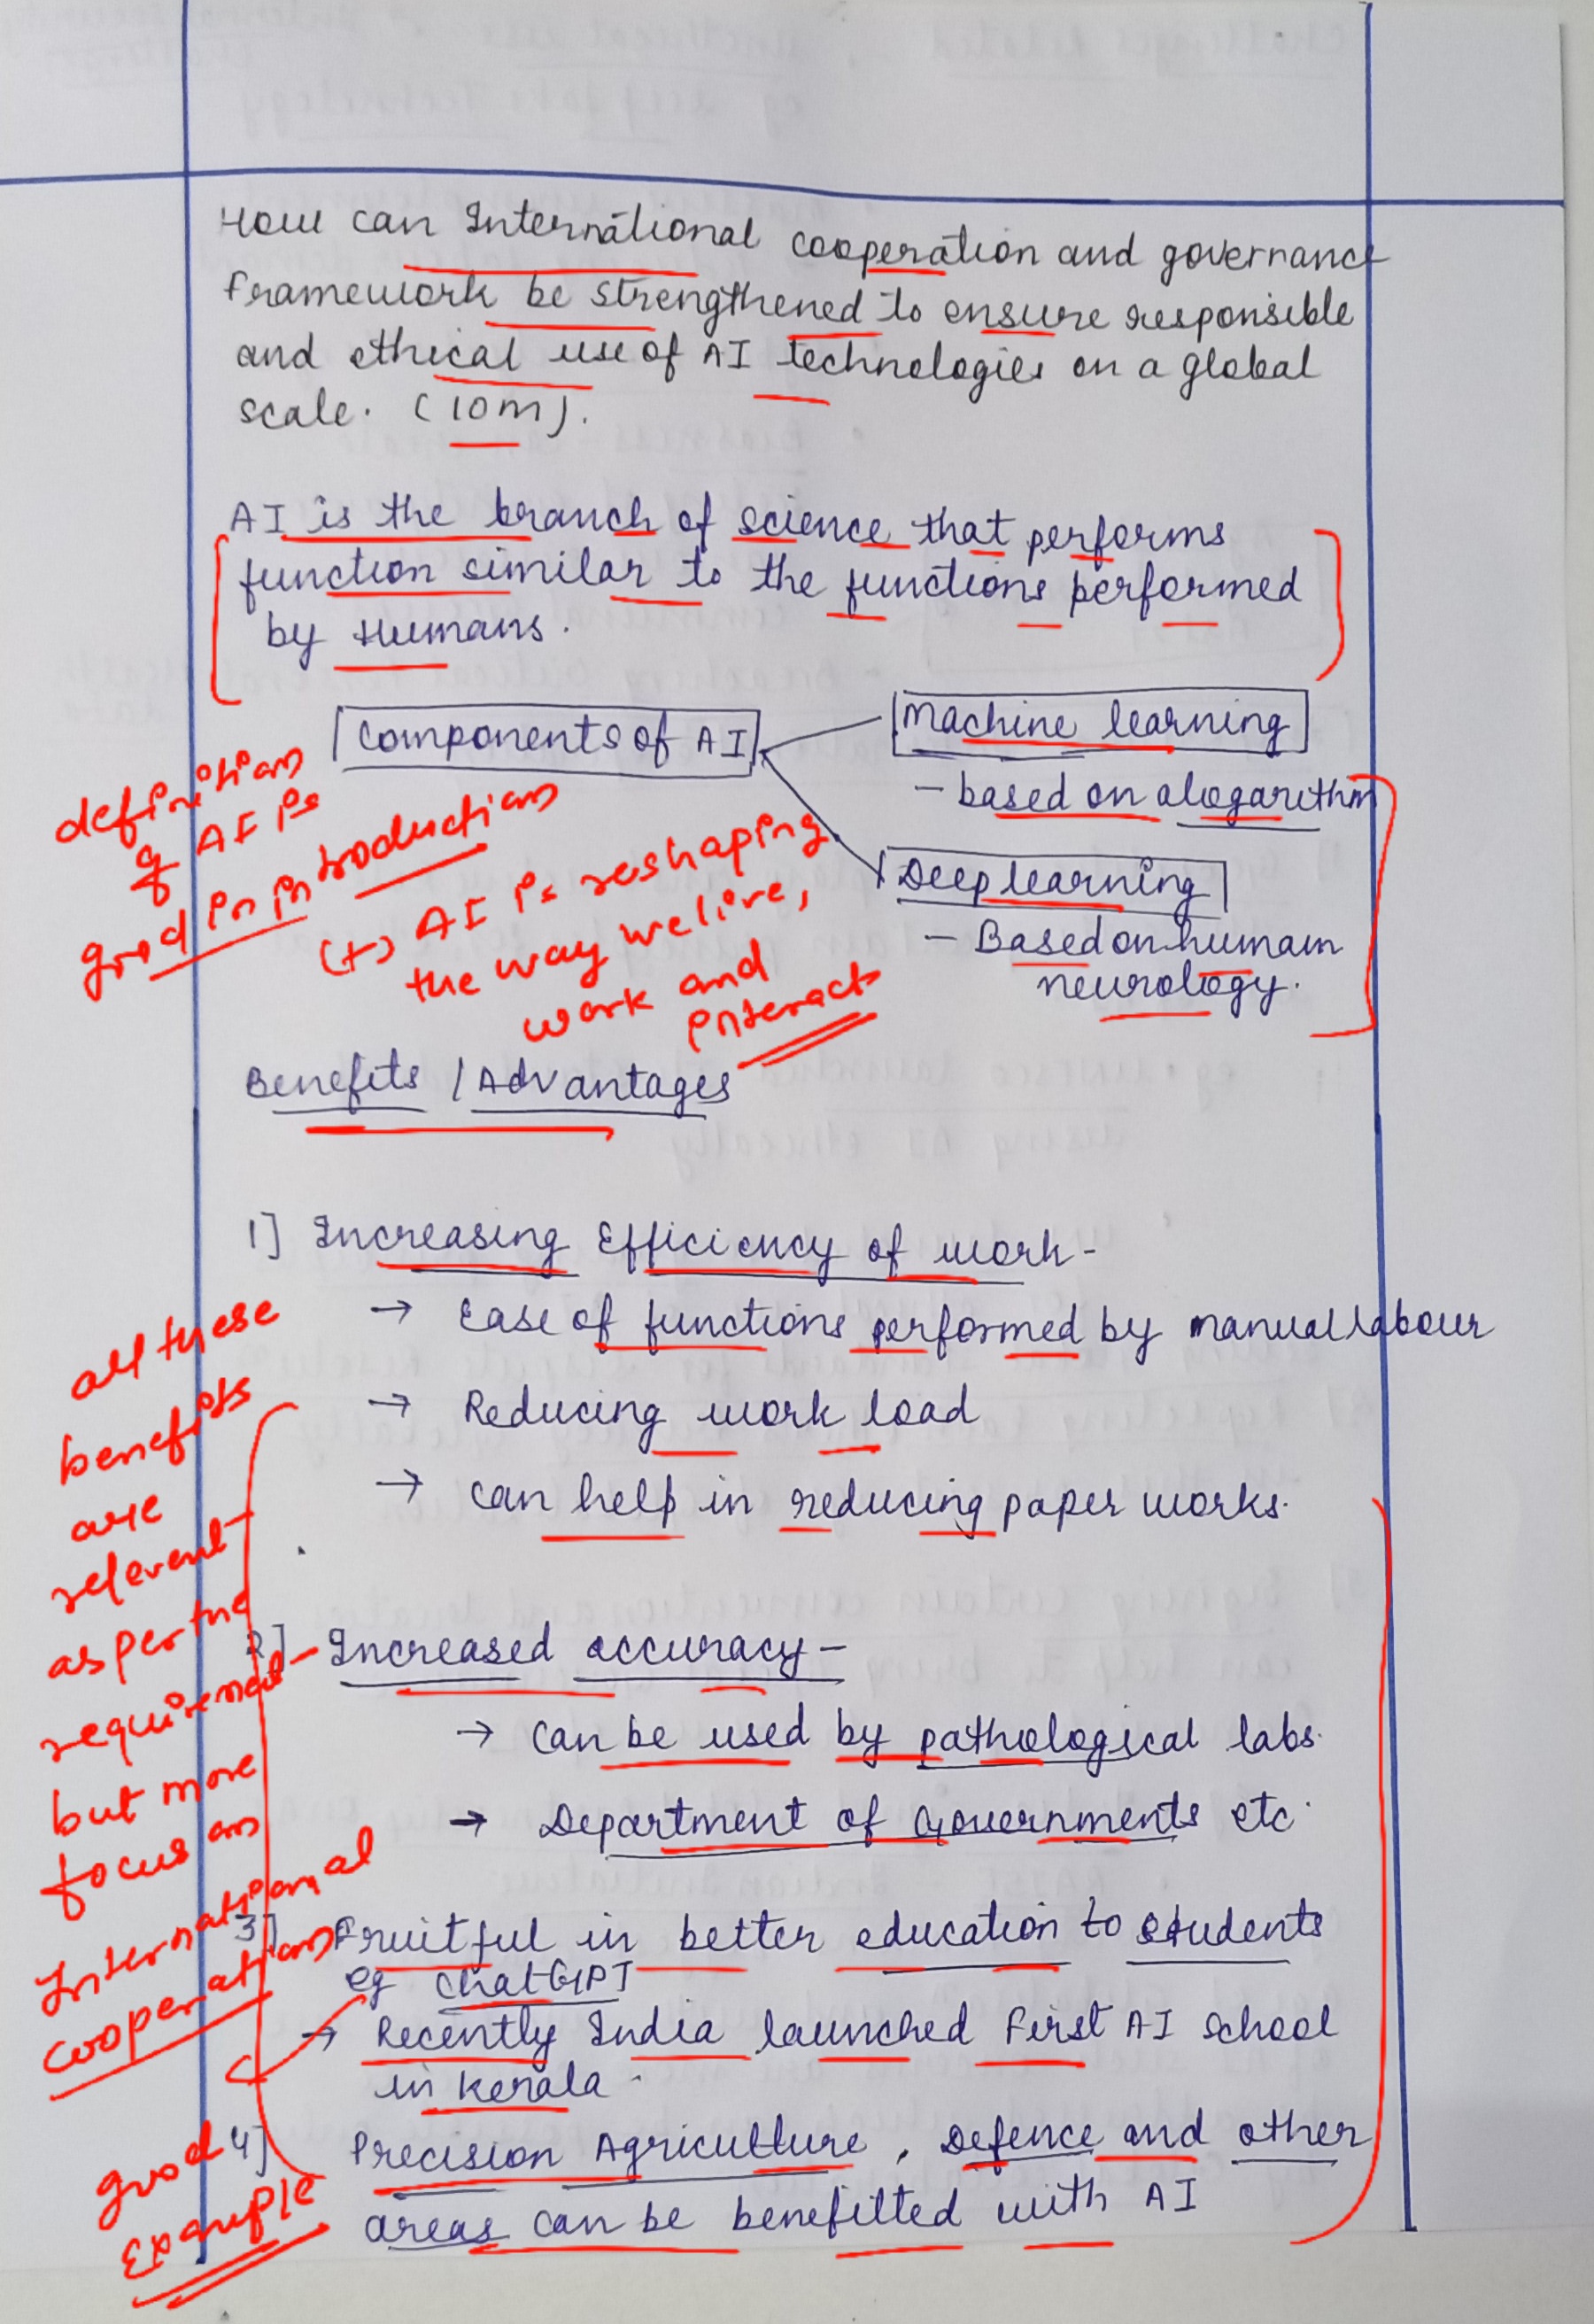 How can International cooperation and governance
framework be strengthened to ensure responsible
and ethical use of AI technologies on a global
scale. (10m).
AI is the branch of science that performs
function similar to the functions performed
by Humans.
Components of AI
Machine learning
- based on alogarithm
Deep learning
- Based on humain
neurology.
definition
of AI is
good in introduction
(+) AI is reshaping
the way we live,
work and
interact
Benefits / Advantages
1] Increasing Efficiency of work -
→ Ease of functions performed by manual labour
→ Reducing work load
→ can help in reducing paper works.
all these
benefits
are
relevent
as per the
but more
focus on
International
cooperation
2] Increased accuracy -
→ can be used by pathological labs.
→ Department of Governments etc.
3] Fruitful in better education to students
eg ChatGPT
→ Recently India launched First AI school
in Kerala.
good
Example
4] Precision Agriculture, Defence and other
areas can be benefitted with AI